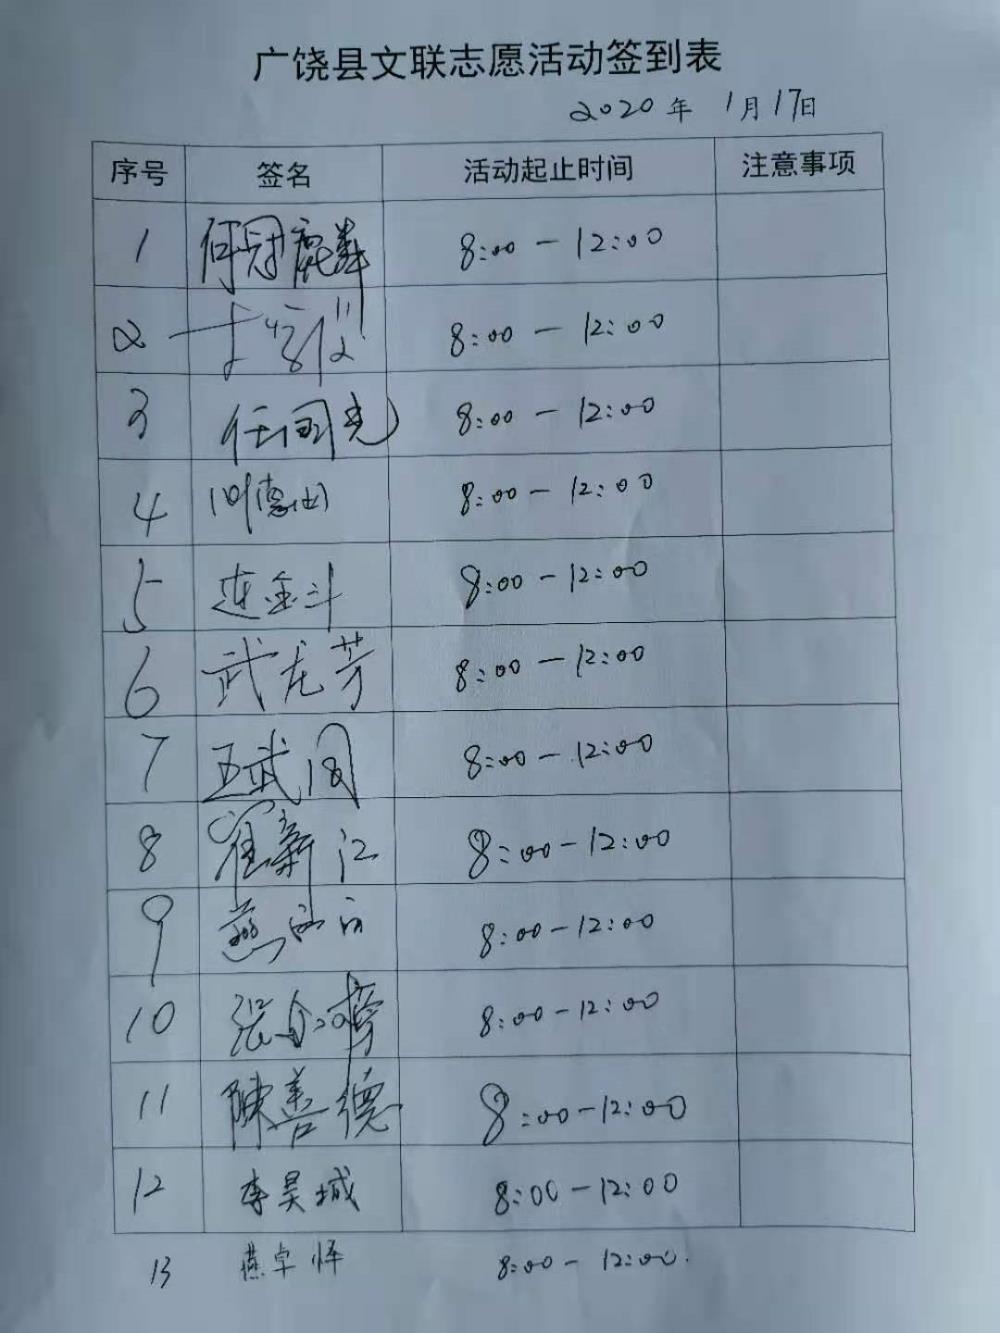 广饶县文联志愿活动签到表
2020年 1月17日
序号 签名 活动起止时间 注意事项
1 何冠麟 8:00-12:00
2 8:00-12:00
3 任国光 8:00-12:00
4 8:00-12:00
5 连金斗 8:00-12:00
6 武龙芳 8:00-12:00
7 王武 8:00-12:00
8 崔新江 8:00-12:00
9 燕 8:00-12:00
10 张 8:00-12:00
11 陳善德 8:00-12:00
12 李昊城 8:00-12:00
13 燕卓 8:00-12:00.